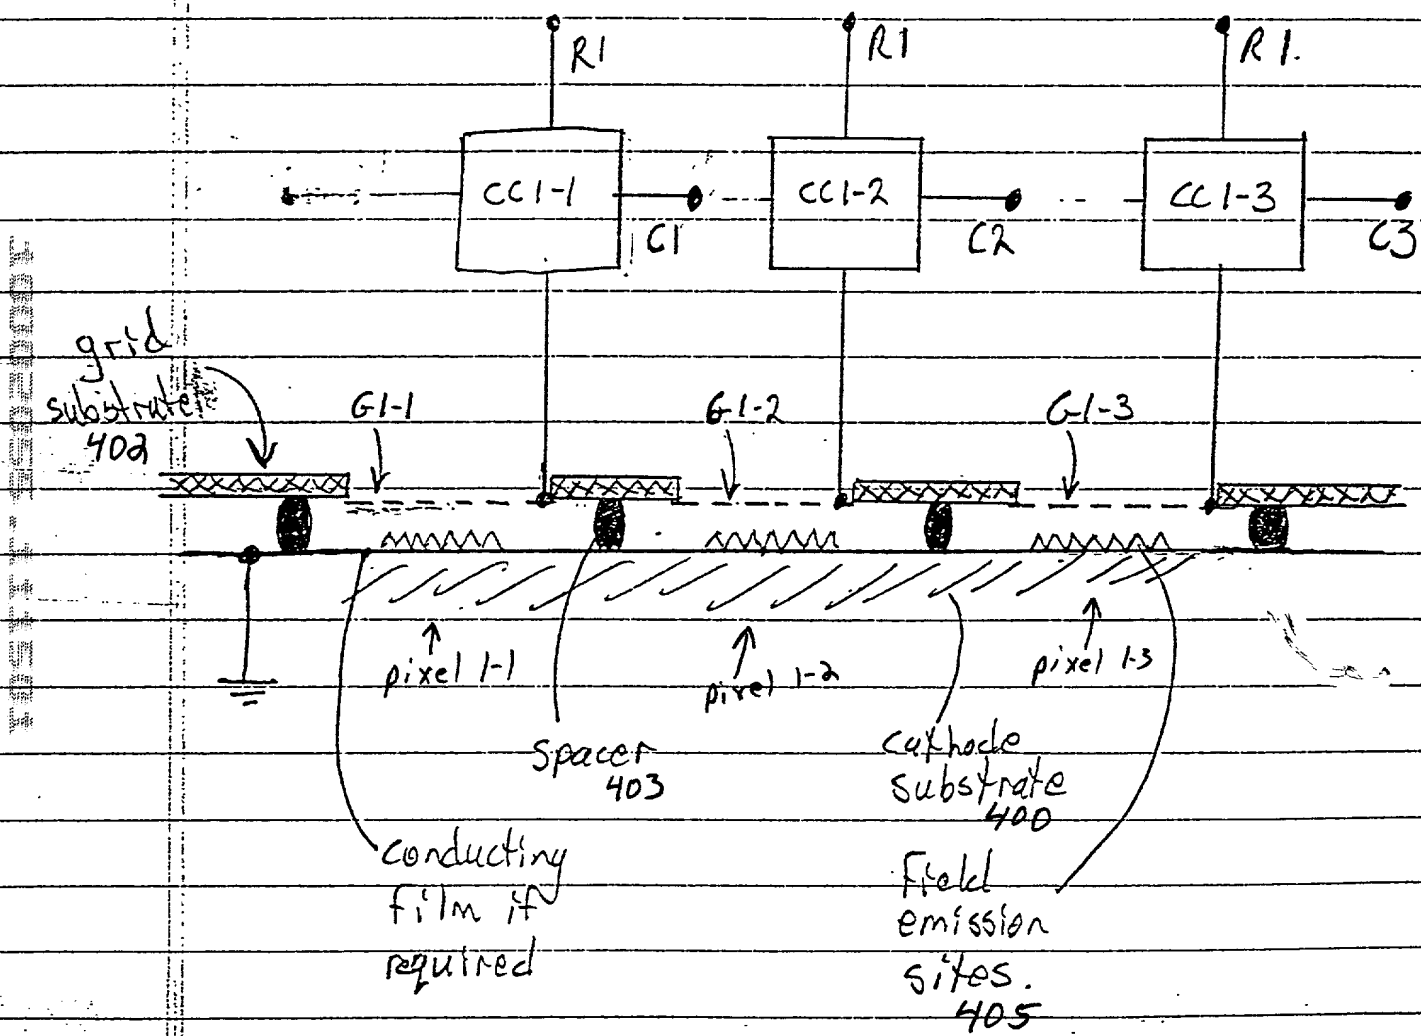 R1 R1 R1.
CC1-1 CC1-2 CC1-3
C1 C2 C3
grid
substrate
402
G1-1 G1-2 G1-3
pixel 1-1 pixel 1-2 pixel 1-3
spacer
403
cathode
substrate
400
conducting
film if
required
Field
emission
sites.
405